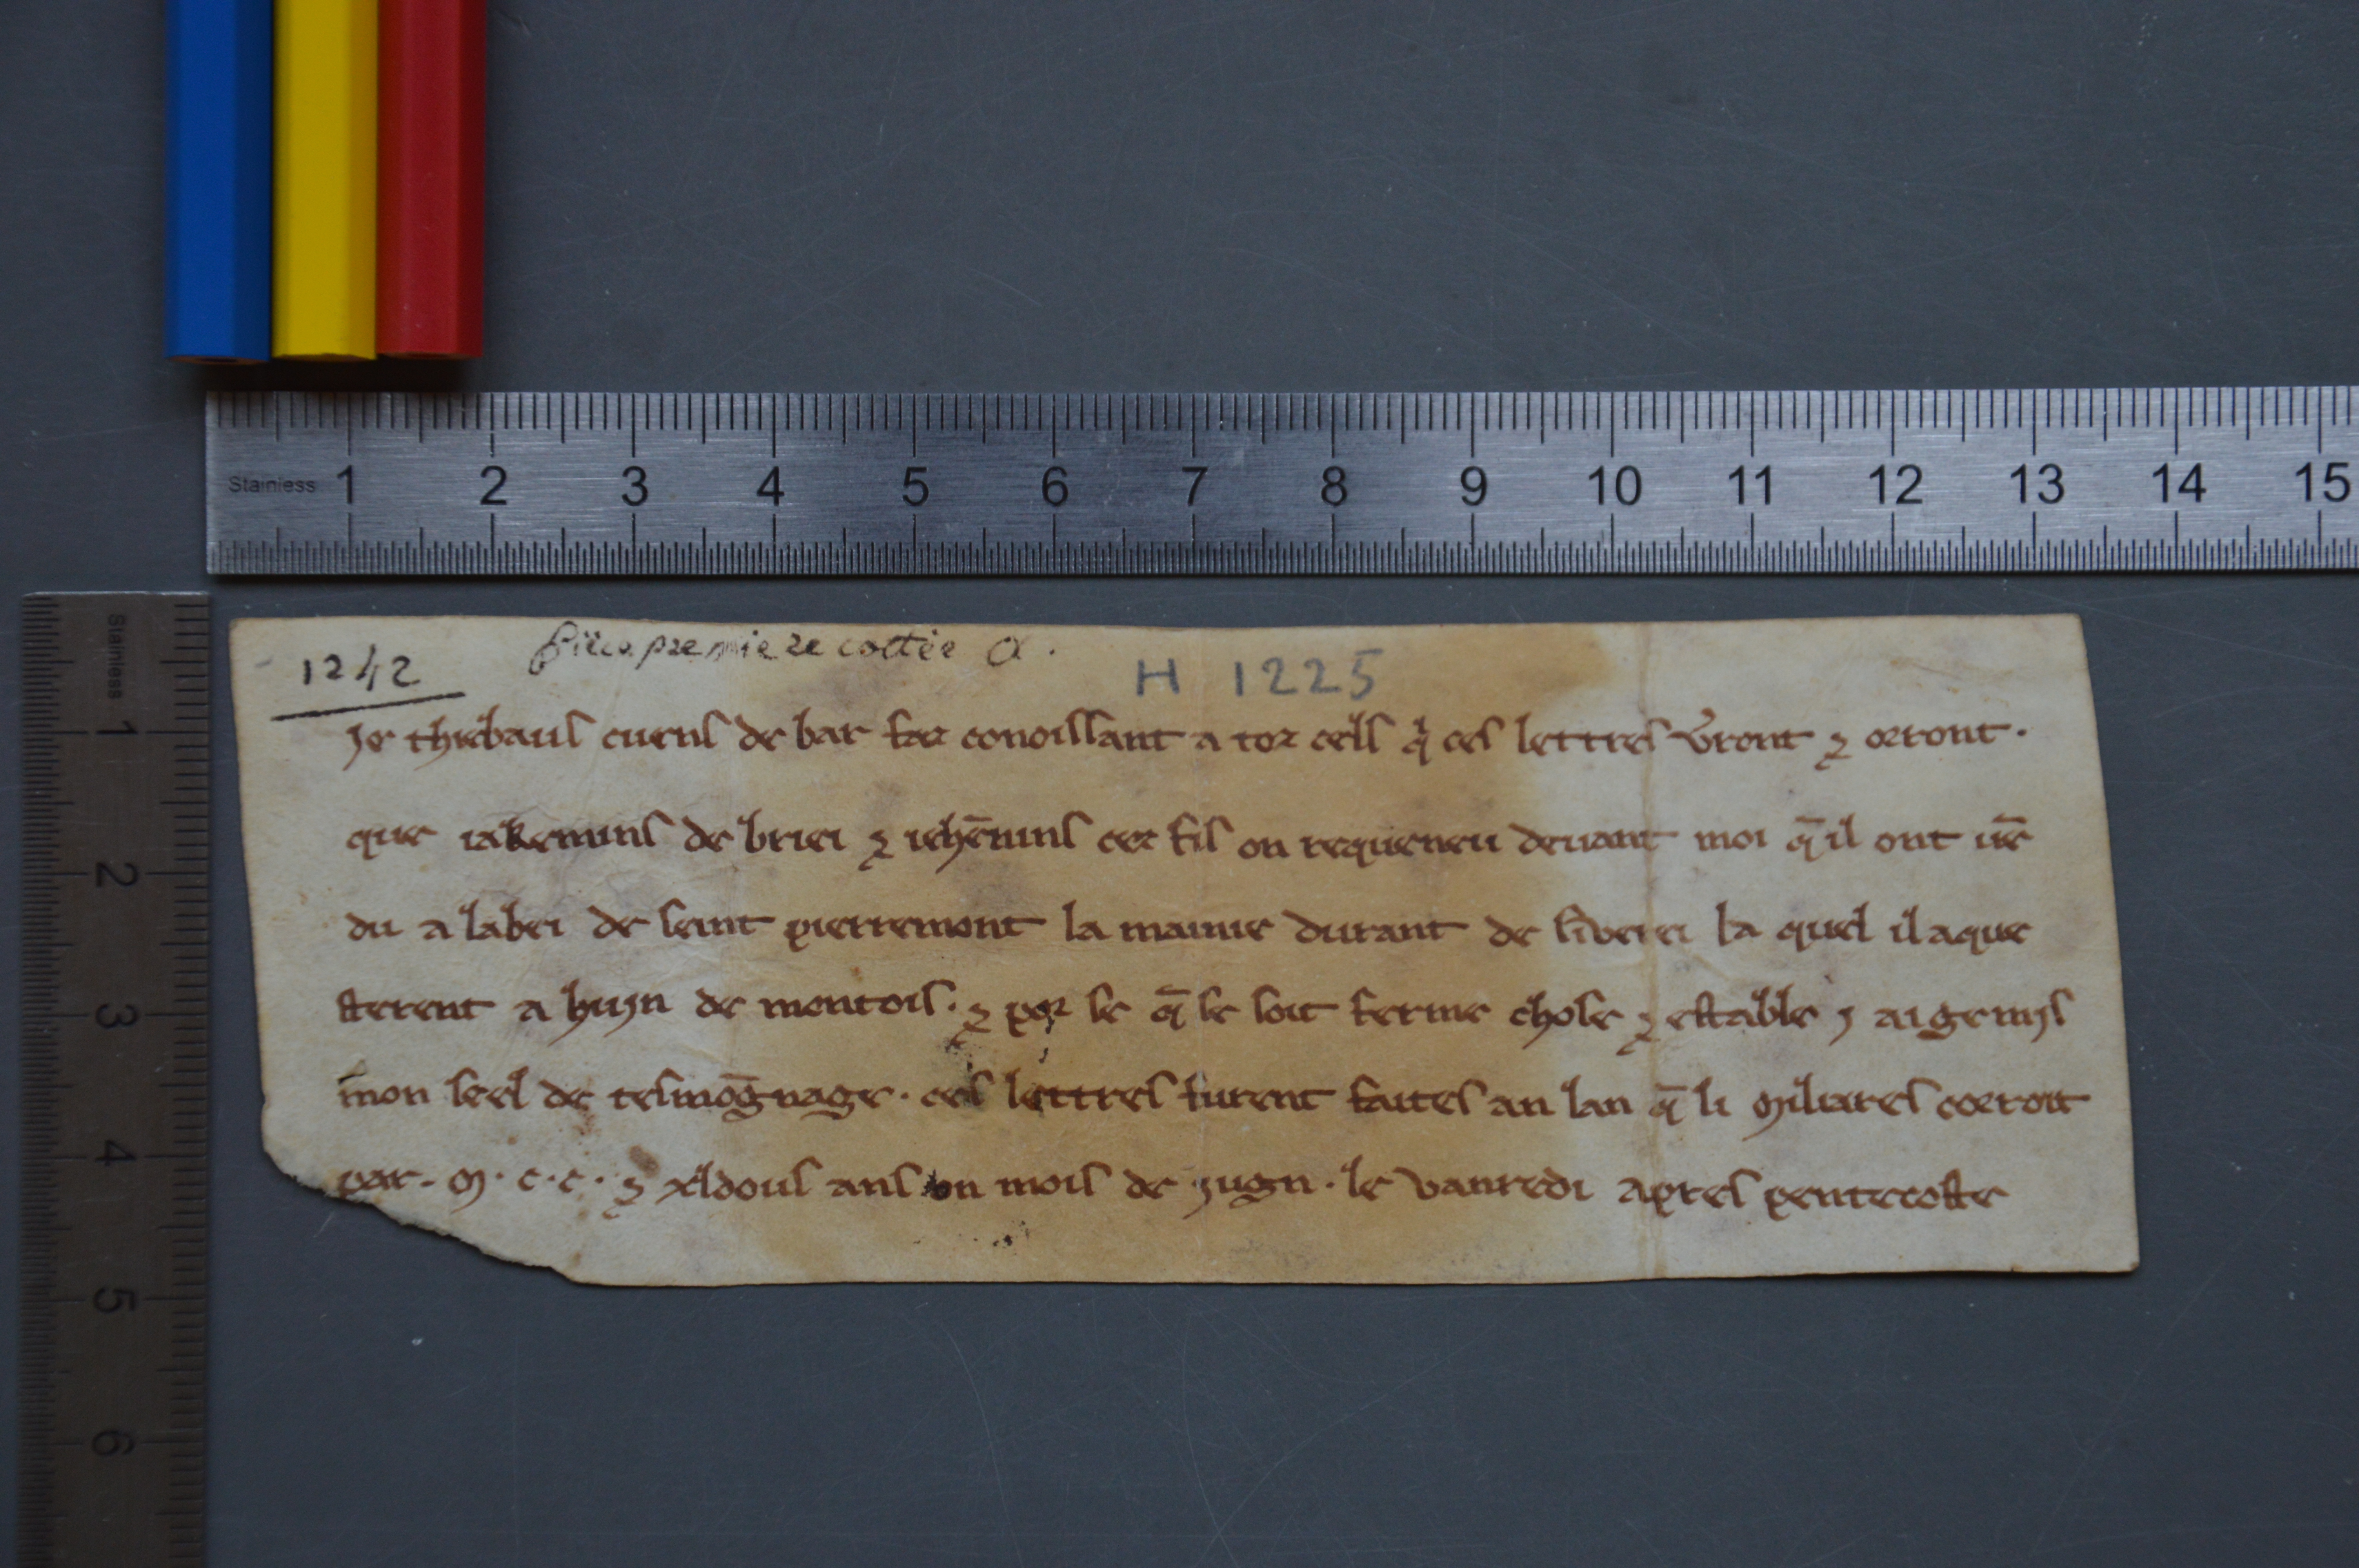 Stainless 1 2 3 4 5 6 7 8 9 10 11 12 13 14 15
Stainless 1 2 3 4 5 6
1242 piece premiere cottée a.
H 1225
Je thiebaus cuens de bar faz conoissant a toz cells q̇ ces lettres v̾ront ⁊ orront.
que iakemins de briei ⁊ iehēnins cez fils on requeneu deuant moi q̄ il ont uē
du a labei de seint pierremont la maniie durant de la quel il aque
sterent a huyn de montois. ⁊ por se q̄ se soit ferme chose ⁊ estable j ai ge mis
mon seel de tesmōgnage. ces lettres furent faites an lan q̄ li miliares corroit
par. m. c. c. ⁊ xldous ans on mois de jugn. le vanredi apres pentecoste